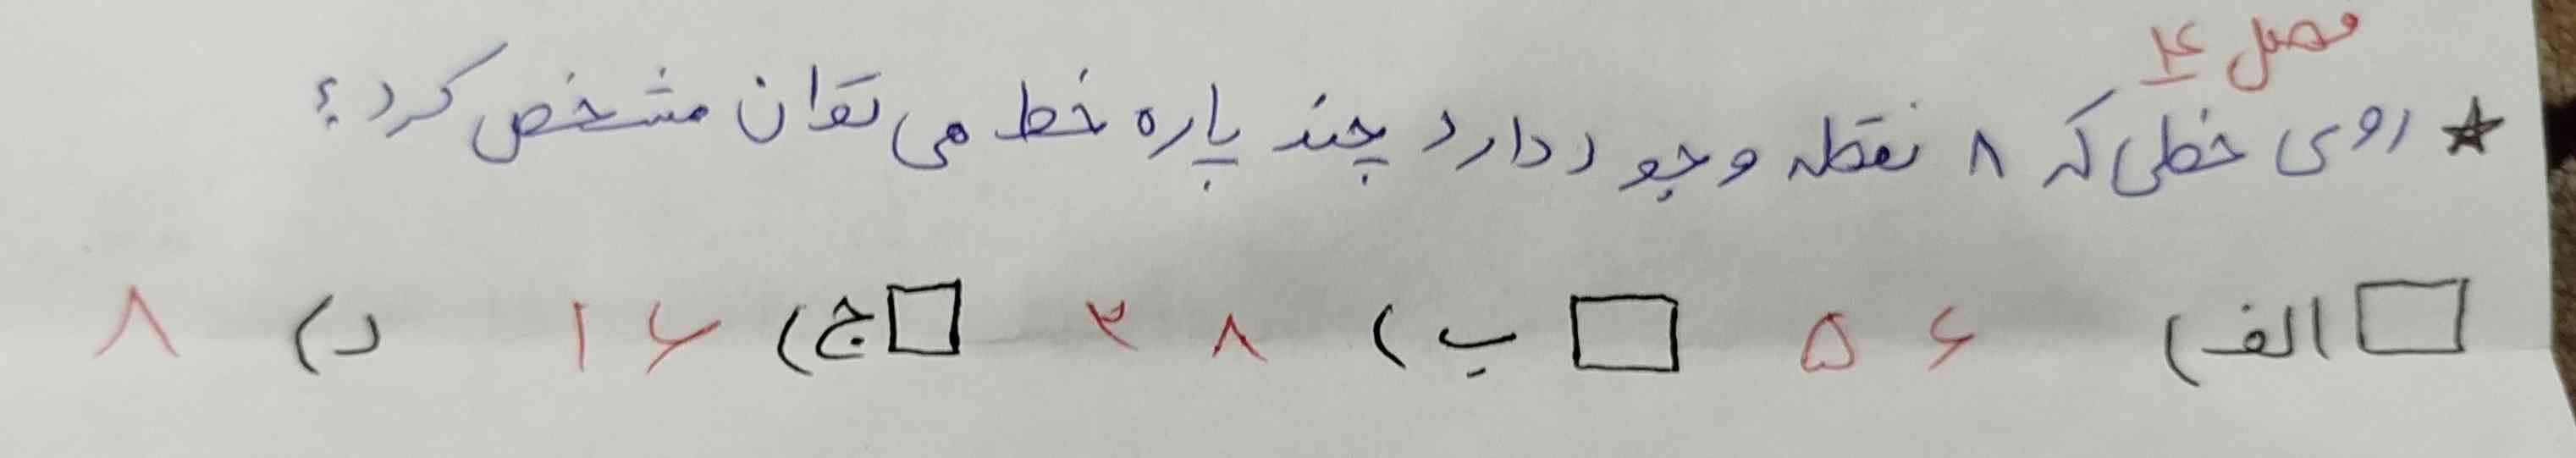 فصل ۴
★ روی خطی که ۸ نقطه وجود دارد چند پاره خط می توان مشخص کرد؟
□ الف) ۵۶ □ ب) ۲۸ □ ج) ۱۶ د) ۸